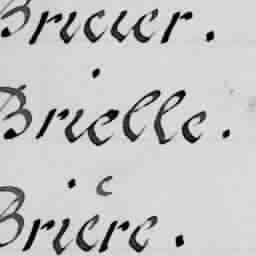 Bricier.
Brielle.
Brière.